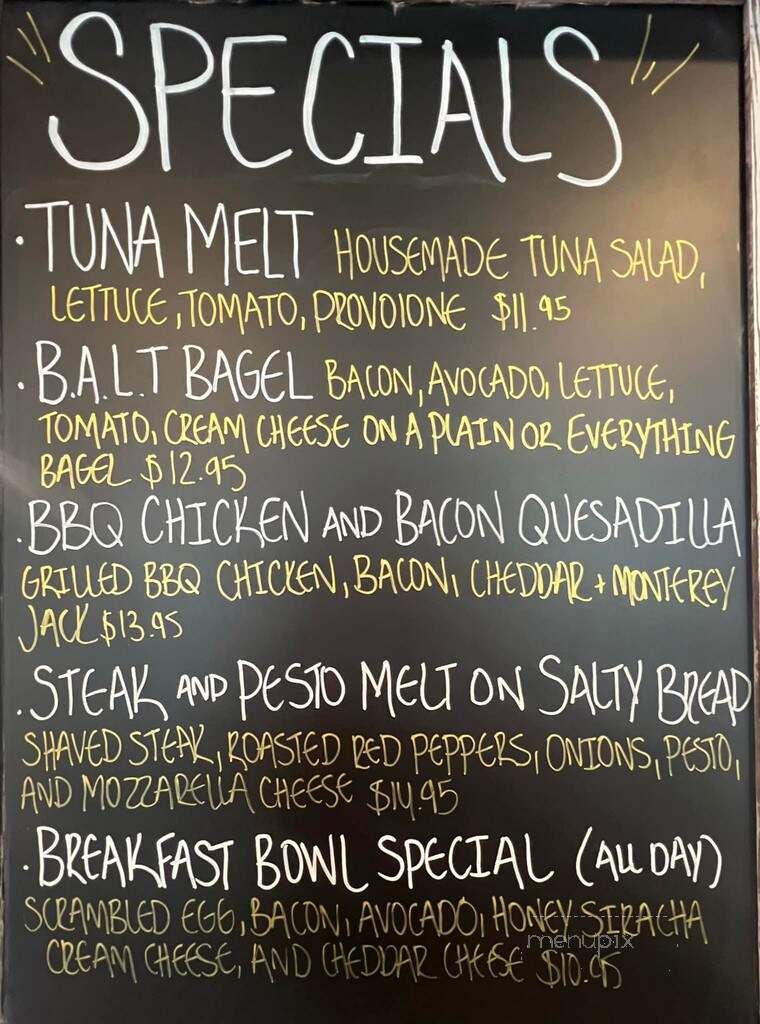 SPECIALS
· TUNA MELT HOUSEMADE TUNA SALAD,
LETTUCE, TOMATO, PROVOIONE $11.95
· B.A.L.T BAGEL BACON, AVOCADO, LETTUCE,
TOMATO, CREAM CHEESE ON A PLAIN OR EVERYTHING
BAGEL $12.95
· BBQ CHICKEN AND BACON QUESADILLA
GRILLED BBQ CHICKEN, BACON, CHEDDAR + MONTEREY
JACK $13.95
· STEAK AND PESTO MELT ON SALTY BREAD
SHAVED STEAK, ROASTED RED PEPPERS, ONIONS, PESTO,
AND MOZZARELLA CHEESE $14.95
· BREAKFAST BOWL SPECIAL (ALL DAY)
SCRAMBLED EGG, BACON, AVOCADO, HONEY SIRACHA
menupix
CREAM CHEESE, AND CHEDDAR CHEESE $10.95